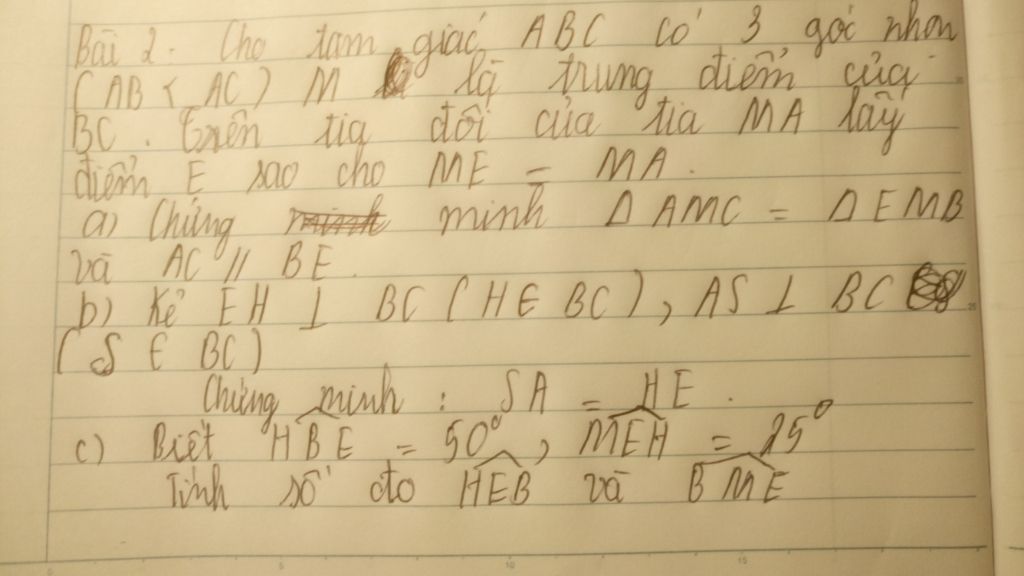 Bài 2. Cho tam giác ABC có 3 góc nhọn
( AB < AC ) M là trung điểm của
BC. Trên tia đối của tia MA lấy
điểm E sao cho ME = MA.
a) Chứng minh minh Δ AMC = Δ EMB
và AC // BE.
b) Kẻ EH ⊥ BC ( H ∈ BC ), AS ⊥ BC
( S ∈ BC )
Chứng minh : SA = HE.
c) Biết HBE = 50°, MEH = 25°
Tính số đo HEB và BME